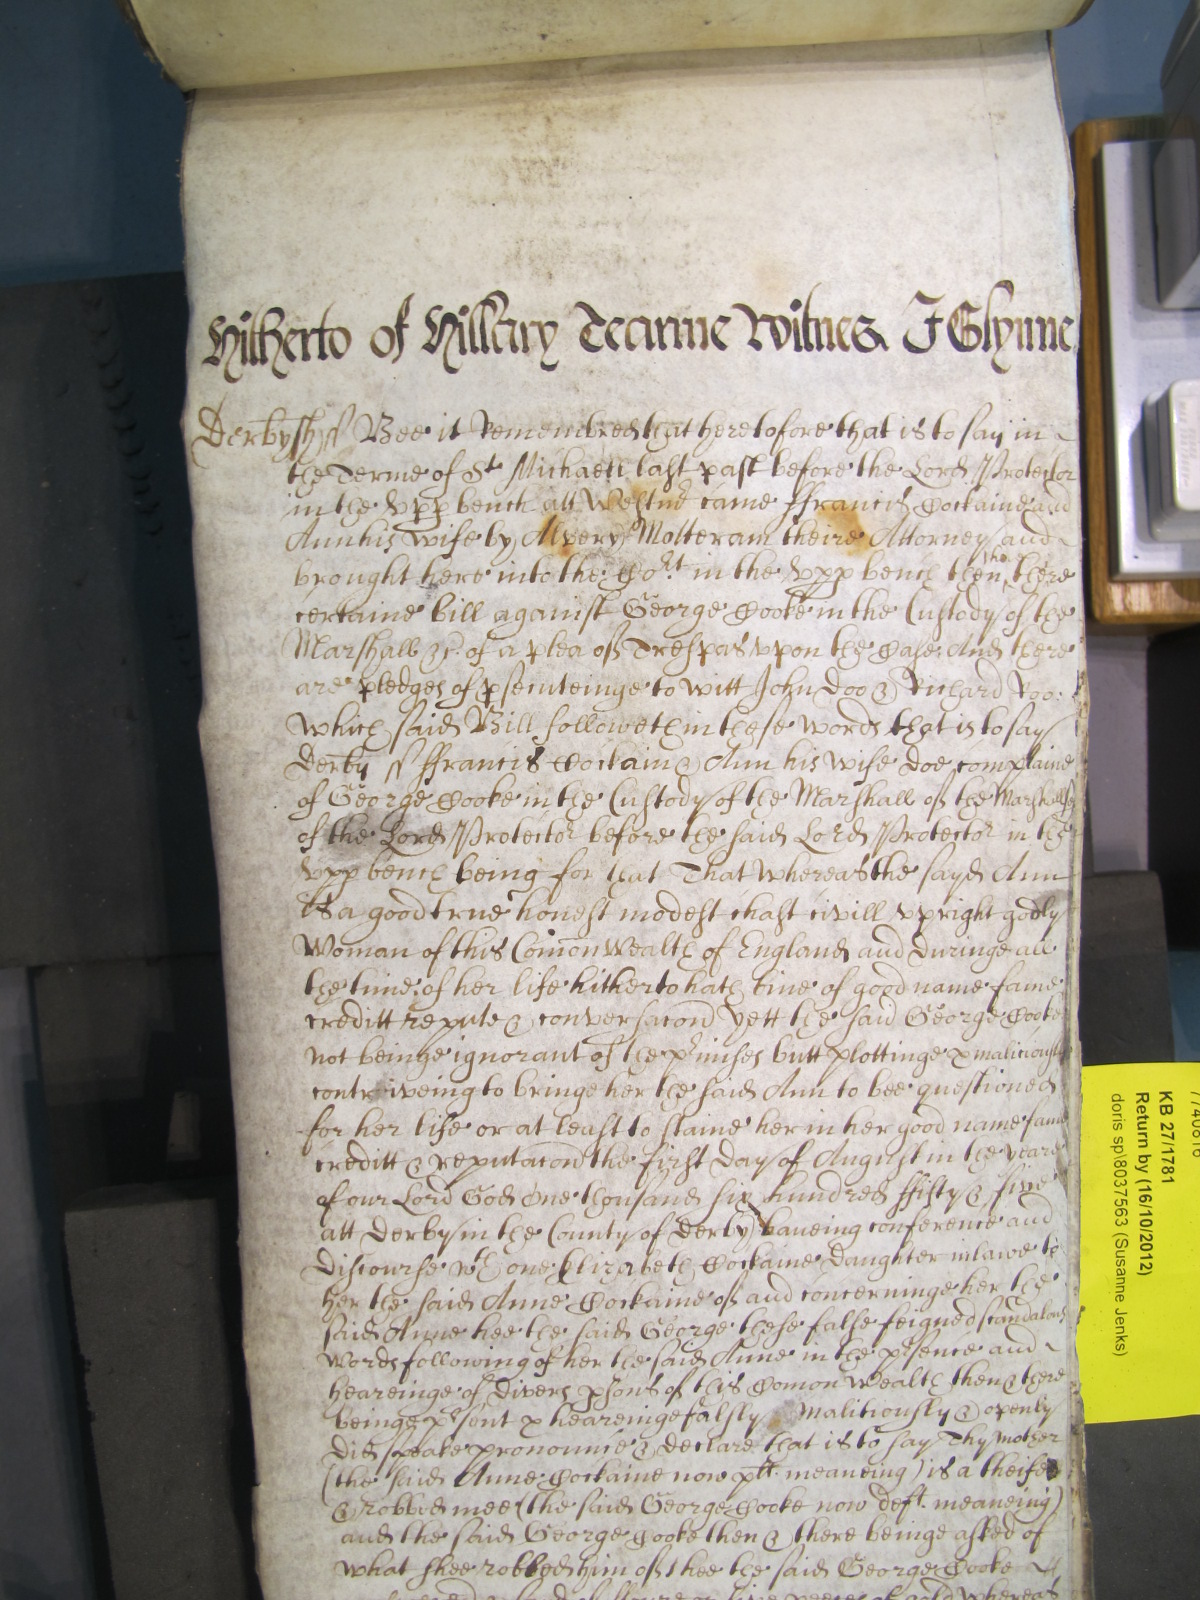 Hitherto of Hillary Tearme Witnes J Glynne
Derbysh ss Bee it Remembred that heretofore that is to say in
the Terme of St Michaell last past before the Lord Protector
in the Upp bench att Westmr came ffrancis Cockaine and
Ann his wife by Alvery Motteram theire Attorney and
brought here into the Cort in the Upp bench then tho there
certaine bill against George Cooke in the Custody of the
Marshall &c of a plea of Trespas upon the Case And there
are pledges of psecuteinge to witt John Doo & Richard Roo
which said Bill followeth in these words that is to say
Derby ss ffrancis Cockain & Ann his wife doe complaine
of George Cooke in the Custody of the Marshall of the Marshallsey
of the Lord Protector before the said Lord Protector in the
Upp bench being for that That whereas the sayd Ann
is a good true honest modest chast civill upright godly
Woman of this Comonwealth of England and duringe all
the time of her life hitherto hath bine of good name fame
creditt repute & conversacon Yett the said George Cooke
not beinge ignorant of the pmisses butt plottinge & maliciously
contriveing to bringe her the said Ann to bee questioned
for her life or at least to staine her in her good name fame
creditt & reputacon the first day of August in the yeare
of our Lord God one thousand six hundred ffifty & five
att Derby in the County of Derby haveing conference and
discourse wth one Elizabeth Cockaine daughter in lawe to
her the said Anne Cockaine of and concerninge her the
said Anne hee the said George these false feigned scandalous
words following of her the said Anne in the psence and
heareinge of divers psons of this Comonwealth then & there
beinge psent & heareinge falsly Malitiously & openly
did speake pronounce & declare that is to say Thy mother
(the said Anne Cockaine now plt meaneing) is a theife
& robbed mee (the said George Cooke now deft meaneing)
and the said George Cooke then & there beinge asked of
what shee robbed him of hee the said George Cooke
of gold whereas
7740616
KB 27/1781
Return by (16/10/2012)
doris sp\8037563 (Susanne Jenks)